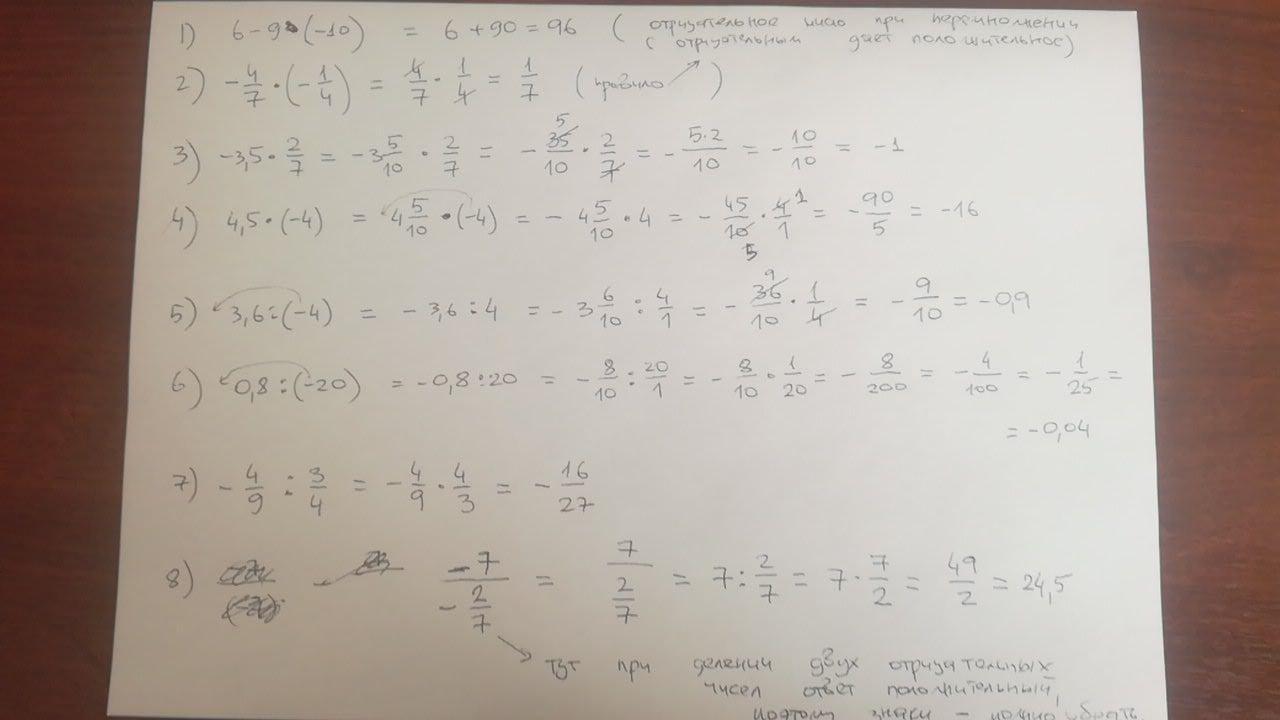 1) 6-9•(-10) = 6+90=96 (отрицательное число при перемножении
с отрицательным дает положительное)
2) -4/7•(-1/4) = 4/7•1/4 = 1/7 (правило ↗)
3) -3,5•2/7 = -3 5/10•2/7 = -35/10•2/7 = -5•2/10 = -10/10 = -1
4) 4,5•(-4) = 4 5/10•(-4) = -4 5/10•4 = -45/10•4/1 = -90/5 = -16
5) 3,6:(-4) = -3,6:4 = -3 6/10:4/1 = -36/10•1/4 = -9/10 = -0,9
6) 0,8:(-20) = -0,8:20 = -8/10:20/1 = -8/10•1/20 = -8/200 = -4/100 = -1/25 =
= -0,04
7) -4/9:3/4 = -4/9•4/3 = -16/27
8) -7/(-2/7) = 7/(2/7) = 7:2/7 = 7•7/2 = 49/2 = 24,5
тут при делении двух отрицательных
чисел ответ положительный,
поэтому знаки - можно убрать